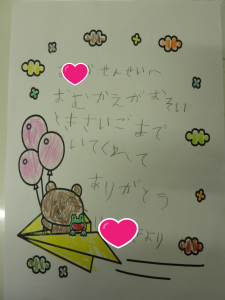 せんせいへ
おむかえがおそい
ときさいごまで
いてくれて
ありがとう
より